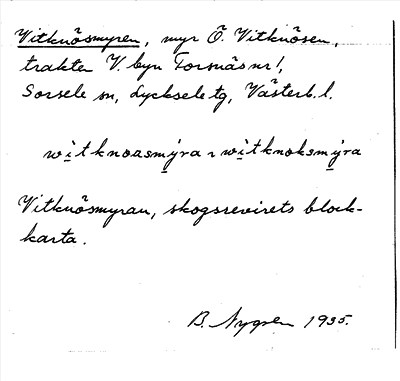 Vitknösmyren, myr Ö. Vitknösen,
trakten V. byn Torsnäs nr 1,
Sorsele sn, Lycksele tg, Västerb. l.
witknoasmýra ~ witknoksmýra
Vitknösmyran, skogsrevirets block-
karta.
B. Nygren 1935.